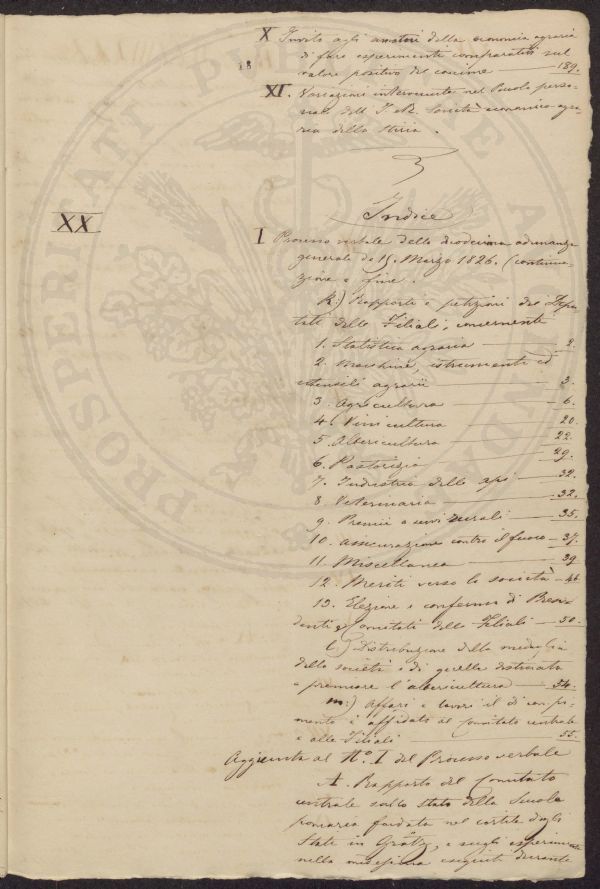 X Invito agli amatori della economia agraria
di fare esperimenti comparativi sul
valore positivo del concime — 189.
18
XI. Variazioni intervenute nel Ruolo perso-
nale dell' I. R. Società economico-agra-
ria della Stiria.
Indice
XX
I Processo verbale della duodecima adunanza
generale de 15. Marzo 1826. (continua-
zione e fine.
K.) Rapporti e petizioni dei Depu-
tati delle Filiali, concernenti
1. Statistica agraria — 2.
2. Macchine, istrumenti ed
utensili agrarii — 3.
3. Agricoltura — 6.
4. Vinicultura — 20.
5. Albericultura — 22.
6. Pastorizia — 29.
7. Industria delle api — 32.
8 Veterinaria — 32.
9. Premii a servi rurali — 35.
10. assicurazione contro il fuoco — 37.
11. Miscellanea — 39
12. Meriti verso la società — 46
13. Elezione e conferma di Presi-
denti e Comitati delle Filiali — 50.
L.) Distribuzione della medaglia
della società e di quella destinata
a premiare l'albericultura — 54.
m.) Affari e lavori il di cui compi-
mento è affidato al Comitato centrale
e alle Filiali — 55.
Aggiunta al No. I del Processo verbale
A. Rapporto del Comitato
centrale sullo stato della Scuola
pomaria fondata nel cortile degli
Stati in Grätz, e sugli esperimenti
nella medesima eseguiti durante
PROSPERITATI PUBLICAE AUGENDAE